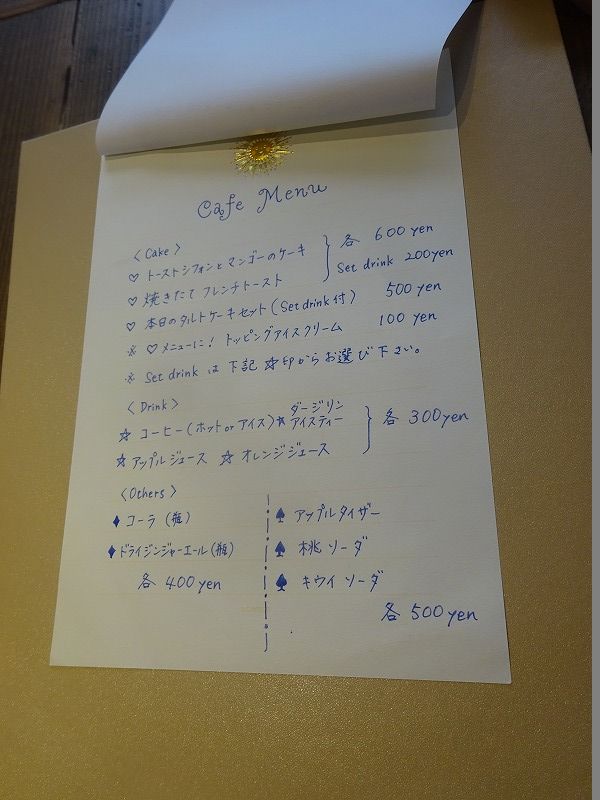 Cafe Menu
〈Cake〉
♡ トーストシフォンとマンゴーのケーキ
♡ 焼きたてフレンチトースト
各 600yen
Set drink 200yen
♡ 本日のタルトケーキセット(Set drink付) 500yen
※ ♡メニューに! トッピングアイスクリーム 100 yen
※ Set drink は 下記 ☆印からお選び下さい。
〈Drink〉
☆ コーヒー(ホット or アイス) ☆ ダージリン アイスティー
☆ アップルジュース ☆ オレンジジュース
各 300yen
〈Others〉
♦ コーラ (瓶)
♦ ドライジンジャーエール(瓶)
各 400yen
♠ アップルタイザー
♠ 桃ソーダ
♠ キウイソーダ
各 500yen